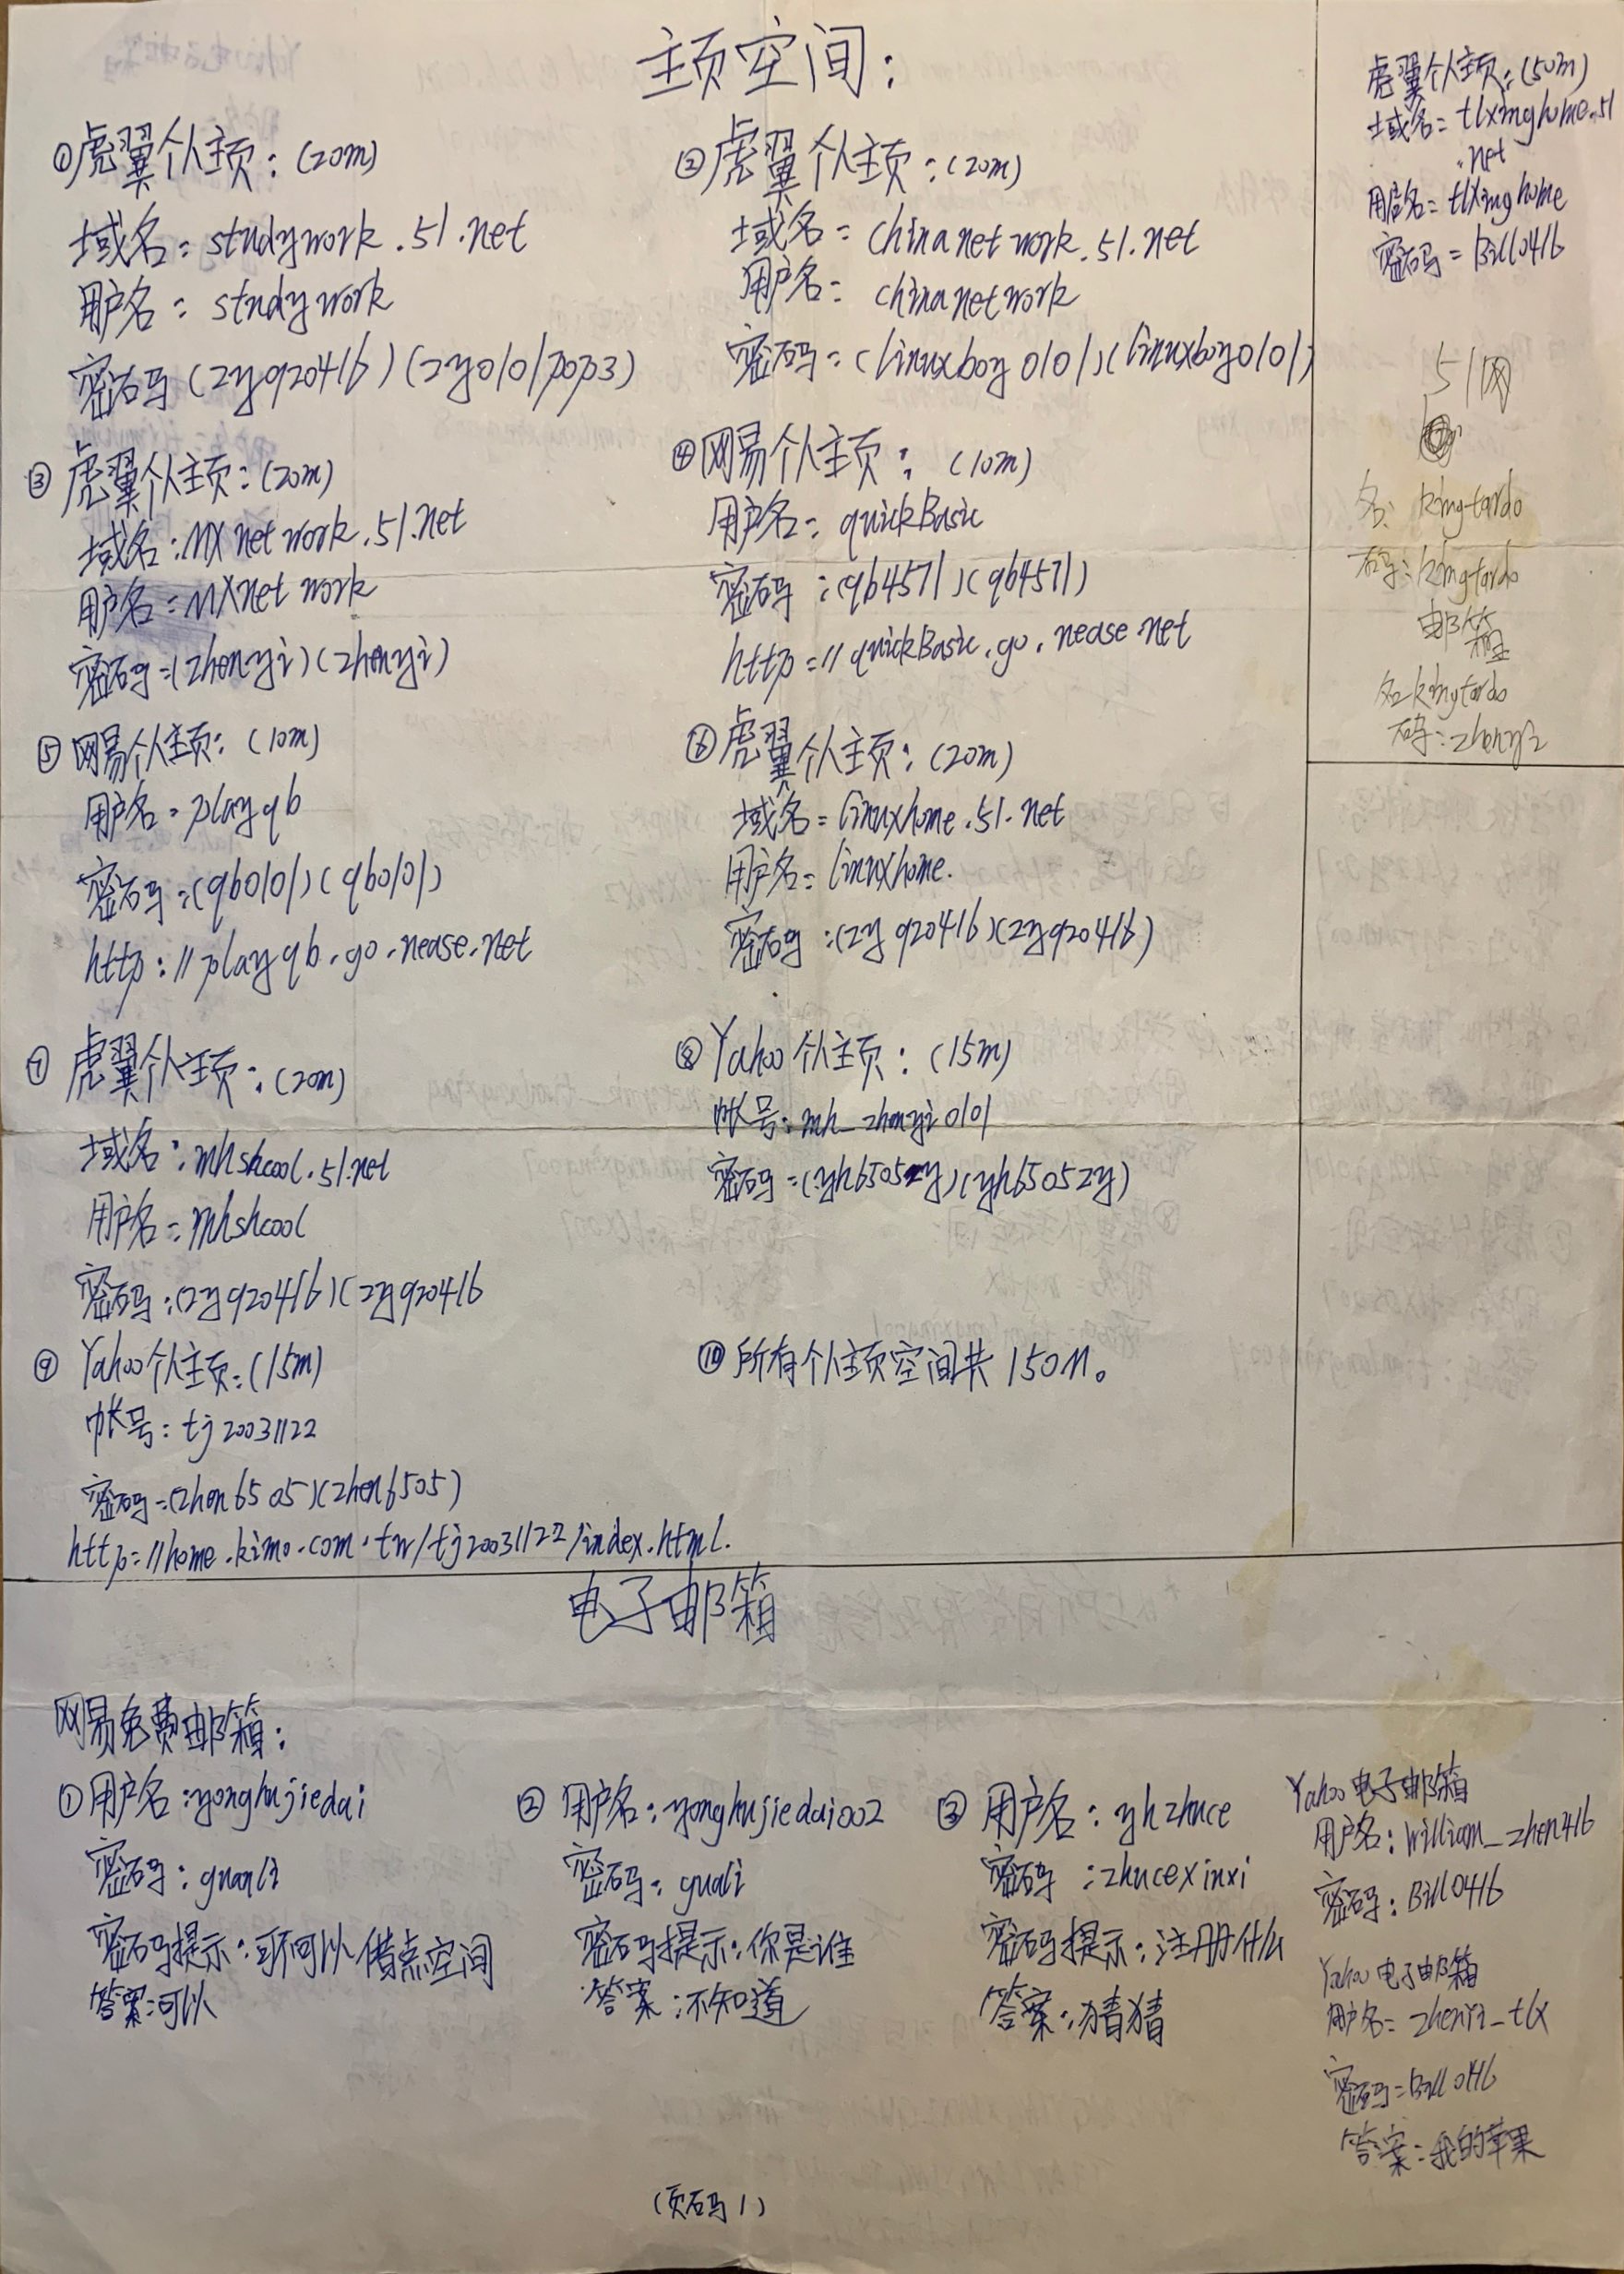 主页空间:
①虎翼个人主页:(20m)
域名:studywork.51.net
用户名:studywork
密码(zyq20416)(zy0101pop3)
②虎翼个人主页:(20m)
域名:chinanetwork.51.net
用户名:chinanetwork
密码:(linuxboy0101)(linuxboy0101)
③虎翼个人主页:(20m)
域名:MXnetwork.51.net
用户名:MXnetwork
密码:(zhenyi)(zhenyi)
④网易个人主页:(10m)
用户名:quickBasic
密码:(qb4571)(qb4571)
http://quickBasic.go.nease.net
⑤网易个人主页:(10m)
用户名:playqb
密码:(qb0101)(qb0101)
http://playqb.go.nease.net
⑥虎翼个人主页:(20m)
域名:linuxhome.51.net
用户名:linuxhome.
密码:(zyq20416)(zyq20416)
⑦虎翼个人主页:(20m)
域名:mhshcool.51.net
用户名:mhshcool
密码:(zyq20416)(zyq20416
⑧Yahoo个人主页:(15m)
帐号:mh_zhenyi0101
密码:(yh6505zy)(yh6505zy)
⑨Yahoo个人主页:(15m)
帐号:tj20031122
密码:(zhen6505)(zhen6505)
http://home.kimo.com.tw/tj20031122/index.html.
⑩所有个人主页空间共150M。
虎翼个人主页:(50m)
域名:tlxinghome.51
.net
用户名:tlxinghome
密码:Bill0416
51网
名:kingtardo
码:kingtardo
邮箱
名:kingtardo
码:zhenyi
电子邮箱
网易免费邮箱:
①用户名:yonghujiedai
密码:guanli
密码提示:可不可以借点空间
答案:可以
②用户名:yonghujiedai002
密码:guali
密码提示:你是谁
答案:不知道
③用户名:yhzhuce
密码:zhucexinxi
密码提示:注册什么
答案:猜猜
Yahoo电子邮箱
用户名:william_zhen416
密码:Bill0416
Yahoo电子邮箱
用户名:zhenyi_tlx
密码:Bill0416
答案:我的苹果
(页码1)